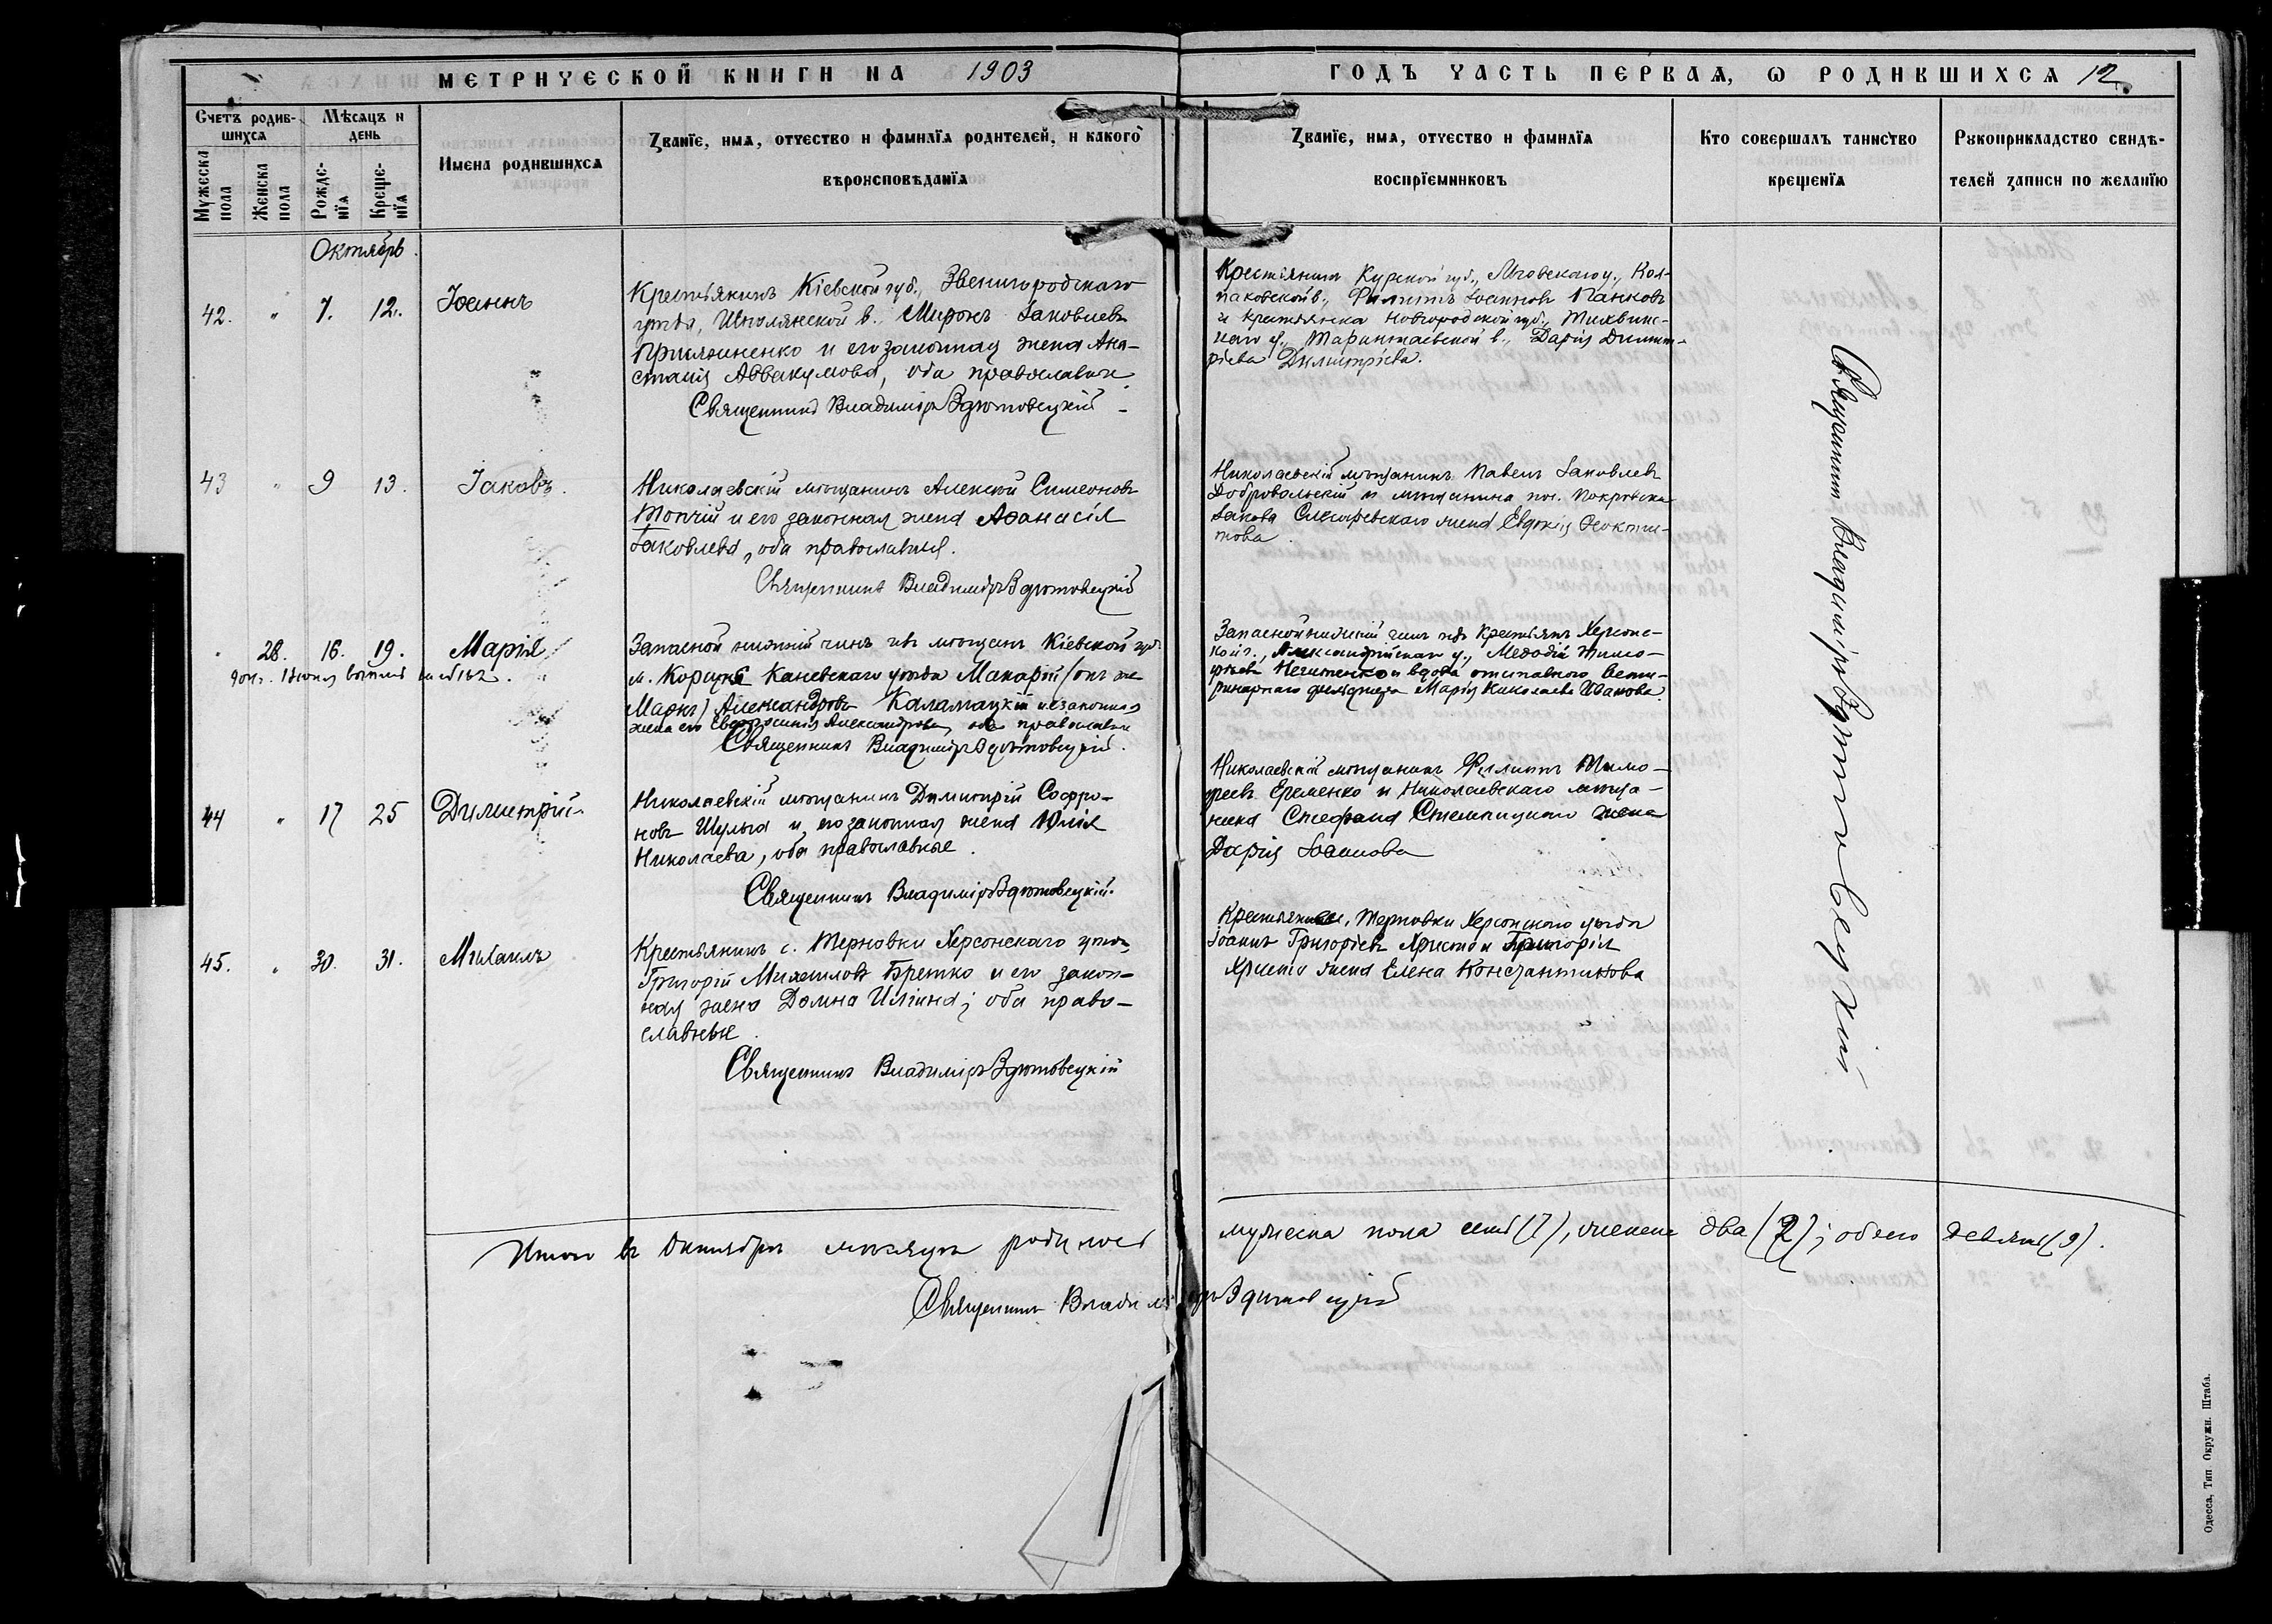 МЕТРИЧЕСКОЙ КНИГИ НА 1903
ГОДЪ ЧАСТЬ ПЕРВАЯ, Ѡ РОДИВШИХСЯ 12
Счетъ родив-
шихся
Мѣсяцъ и
день
Мужеска
пола
Женска
пола
Рожде-
нїя
Креще-
нїя
Имена родившихся
Званїе, имя, отчество и фамилїя родителей, и какого
вѣроисповѣданїя
Званїе, имя, отчество и фамилїя
воспрїемниковъ
Кто совершалъ таинство
крещенїя
Рукоприкладство свидѣ-
телей записи по желанїю
Октябрь
42. " 7. 12. Іоаннъ
Крестьянинъ Кіевской губ., Звенигородскаго
уѣзда, Шполянской в. Миронъ Іаковлевъ
и его законная жена Ана-
стасія Аввакумова, оба православные
Священникъ Владиміръ Здетовецкій
Крестьянинъ Курской губ., Льговскаго у.,
Филиппъ Іоанновъ Панковъ
и крестьянка Новгородской губ., Тихвинс-
каго у., в., Дарія Димит-
ріева Димитріева.
43 " 9 13. Іаковъ.
Николаевскій мѣщанинъ Алексій Симеоновъ
Топчій и его законная жена Аѳанасія
Іаковлева, оба православные.
Священникъ Владиміръ Здетовецкій
Николаевскій мѣщанинъ Павелъ Іаковлевъ
Добровольскій и мѣщанина пос. Покровска
Іакова Слюсаревскаго жена Евдокія Ѳеоктис-
това
" 28. 16. 19. Марія
Запасной нижній чинъ изъ мѣщанъ Кіевской губ.
м. Корсуня Каневскаго уѣзда Макарій (онъ же
Маркъ) Александровъ Каламацкій и законная
жена его Евфросинія Александрова, оба православные
Священникъ Владиміръ Здетовецкій.
Запасной нижній чинъ изъ крестьянъ Херсонс-
кой г., Александрійскаго у., Меѳодій Тимо-
ѳеевъ и вдова отставного вете-
ринарнаго фельдшера Марія Николаева Иванова
44 " 17 25 Димитрій
Николаевскій мѣщанинъ Димитрій Софро-
новъ Шульга и его законная жена Юлія
Николаева, оба православные.
Священникъ Владиміръ Здетовецкій.
Николаевскій мѣщанинъ Филиппъ Тимо-
ѳеевъ Еременко и Николаевскаго мѣща-
нина Стефана жена
Дарія Іоаннова
45. " 30. 31. Михаилъ
Крестьянинъ с. Терновки Херсонскаго уѣзда
Григорій Михаиловъ Бретко и его закон-
ная жена Домна Иліина; оба право-
славные.
Священникъ Владиміръ Здетовецкій
Крестьяне с. Терновки Херсонскаго уѣзда
Іоаннъ Григоріевъ Христо и Григорія
Христо жена Елена Константинова
Священникъ Владиміръ Здетовецкій
Итого въ октябрѣ мѣсяцѣ родилось мужеска пола семь (7), женска два (2); обоего девять (9).
Священникъ Владиміръ Здетовецкій
Одесса, Тип Окружн. Штаба.